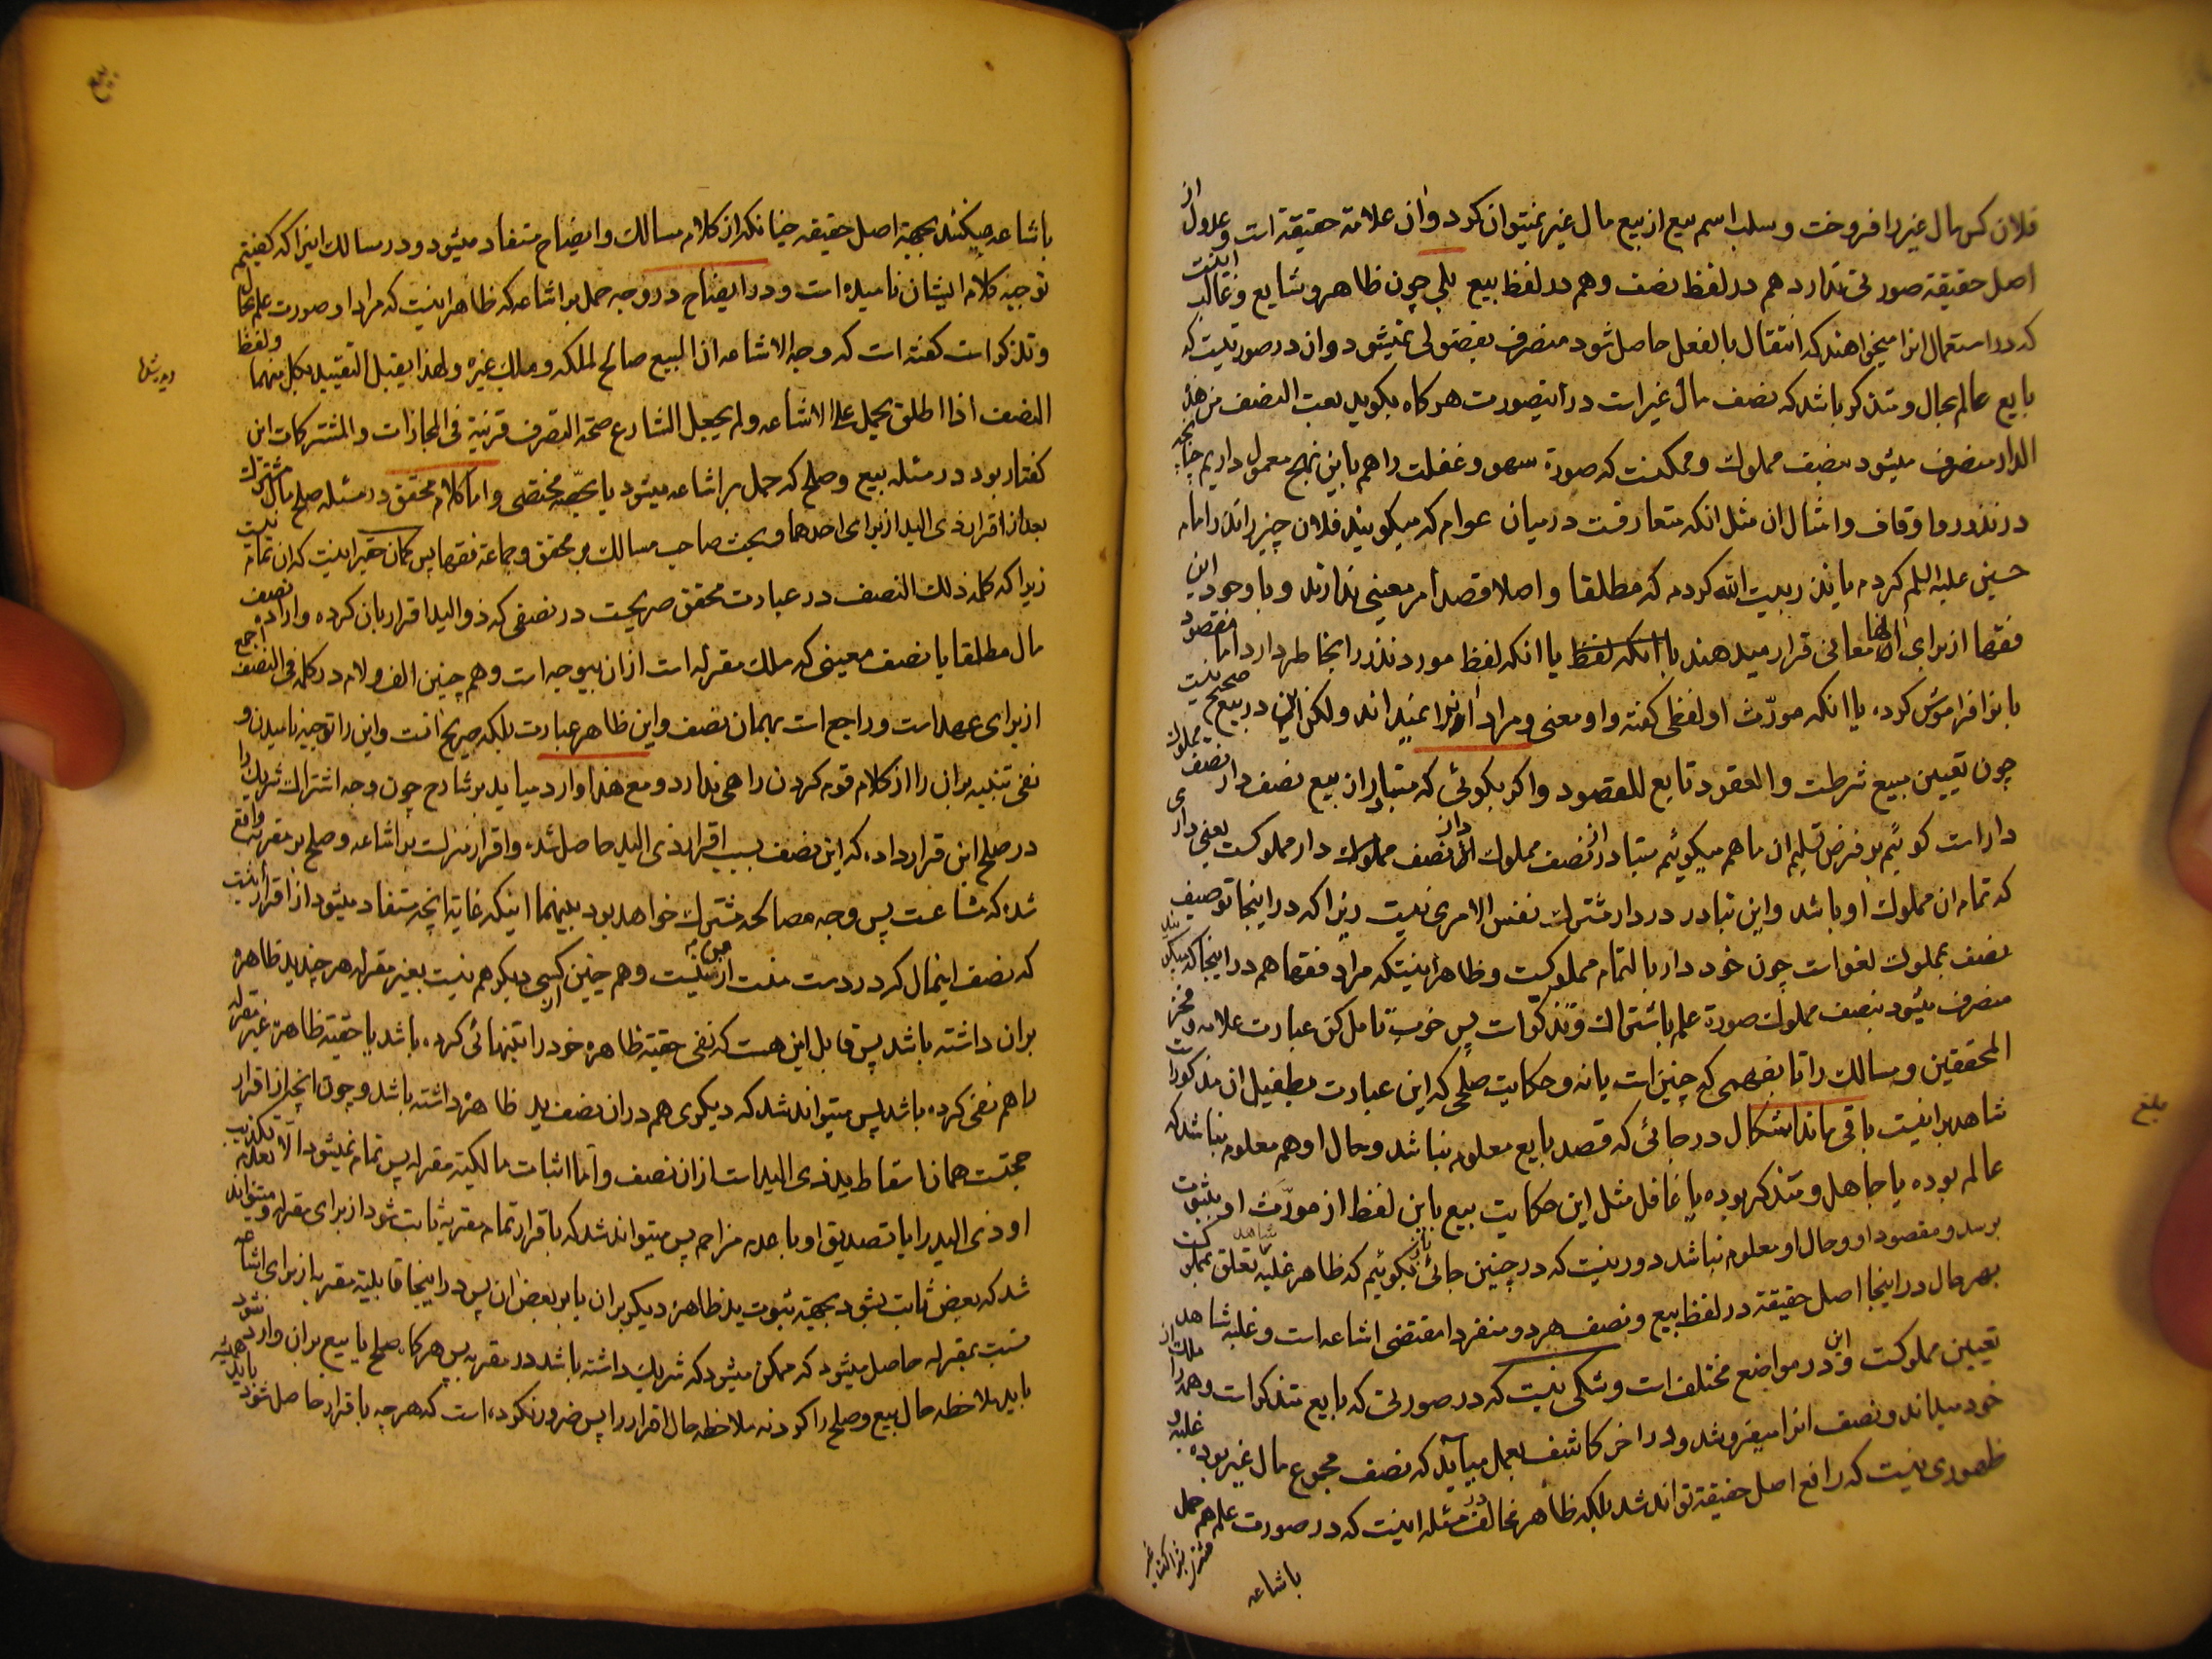 فلان کس مال غیر را فروخت و سلب اسم بیع از بیع مال غیر نمیتوان کرد و ان علامة حقیقة است و عدول از
اصل حقیقة صورتی ندارد هم در لفظ نصف و هم در لفظ بیع بلی چون ظاهر و شایع و غالب اینست
که در استعمال انرا میخواهند که انتقال بالفعل حاصل شود منصرف بفضولی نمیشود و ان در صورتیست که
بایع عالم بحال و متذکر باشد که نصف مال غیر است در اینصورت هر کاه بکوید بعت النصف من هذه
الدار منصرف میشود بنصف مملوک و ممکنست که صورة سهو و غفلت را هم باین نهج معمول داریم چنانچه
در نذور و اوقاف و امثال ان مثل انکه متعارفست در میان عوام که میکویند فلان چیز را نذر امام
حسین علیه السلم کردم یا نذر بیت الله کردم که مطلقا و اصلا قصد امر معینی ندارند و با وجود این
فقها از برای انها معانی قرار میدهند با انکه لفظ یا انکه لفظ مورد نذر در انجا طهر دارد اما مقصود
بانرا فراموش کرده یا انکه مورّث او لفظی کفته و او معنی و مراد او را نمیداند ولکن این در بیع صحیح نیست
چون تعیین مبیع شرطست و العقود تابع للقصود و اکر بکوئی که متبادر از بیع نصف دار نصف مملوک
دار است کوئیم بر فرض تسلیم ان ما هم میکوئیم متبادر از نصف مملوک از دار نصف مملوک دار مملوکست یعنی داری
که تمام ان مملوک او باشد و این تبادر در دار مشترک نفس الامری نیست زیرا که در اینجا توصیف
نصف بمملوک لغو است چون خود دار بالتمام مملوکست و ظاهر اینستکه مراد فقها هم در اینجا که میکویند
منصرف میشود بنصف مملوک صورة علم باشتراک و تذکر است پس خوب تامل کن عبارت علامه و فخر
المحققین و مسالک را تا بفهمی که چنین است یا نه و حکایت صلحی که این عبارت بطفیل ان مذکور است
شاهد بر اینست باقی ماند اشکال در جائی که قصد بایع معلوم نباشد و حال او هم معلوم نباشد که
عالم بوده یا جاهل و متذکر بوده یا غافل مثل این حکایت بیع باین لفظ از مورّث او بثبوت
برسد و مقصود او و حال او معلوم نباشد دور نیست که در چنین جائی باز بکوئیم که ظاهر غلبه تعلق بمملوکست
بهر حال در اینجا اصل حقیقة در لفظ بیع و نصف هر دو منفردا مقتضی اشاعه است و غلبه شاهد
تعیین مملوکست و این در مواضع مختلف است و شکی نیست که در صورتی که بایع متذکر است و همه را ملک از
خود میداند و نصف انرا میفروشد و در اخر کاشف بعمل میاید که نصف مجموع مال غیر بوده غلبه و
ظهوری نیست که رافع اصل حقیقة تواند شد بلکه ظاهر مخالف در مسئله اینست که در صورت علم هم حمل
باشاعه
بلغ
بیع
باشاعه میکنند بجهة اصل حقیقه چنانکه از کلام مسالک و ایضاح مستفاد میشود و در مسالک اینرا که کفتیم
توجیه کلام ایشان نامیده است و در ایضاح در وجه حمل بر اشاعه که ظاهر اینست که مراد او صورت علم بحال
و تذکر است کفته است که وجه الاشاعه ان المبیع صالح لملکه و ملک غیره و لهذا یقبل التقیید بکل منهما و لفظ
النصف اذا اطلق یحمل علی الاشاعه و لم یجعل الشارع صحة التصرف قرینة فی المجازات و المشترکات این
کفتار بود در مسئله بیع و صلح که حمل بر اشاعه میشود یا بحصه مختصی و اما کلام محقق در مسئله صلح مال مشترک
بعد از اقرار ذی الید از برای احدهما و بحث صاحب مسالک بر محقق و جماعة فقها پس کمان حقیر اینست که ان تمام نیست
زیرا که کلمه ذلک النصف در عبارت محقق صریحست در نصفی که ذو الید اقرار بان کرده و اراده نصف
مال مطلقا یا نصف معینی که ملک مقر له است از ان بیوجه است و هم چنین الف و لام در کلمه فی النصف اجمع
از برای عهد است و راجع است بهمان نصف و این ظاهر عبارت بلکه صریح انست و این را توجیه نامیدن و
نفی تنبیه بران را از کلام قوم کردن راهی ندارد و مع هذا وارد میاید بر شارح چون وجه اشتراک شریک را
در صلح این قرار داده که این نصف بسبب اقرار ذی الید حاصل شده و اقرار منزلست بر اشاعه و صلح بر مقر به واقع
شده که مشاعست پس وجه مصالحه مشترک خواهد بود بینهما اینکه غایة انچه مستفاد میشود از اقرار اینست
که نصف اینمال کرد در دست منست از من نیست و هم چنین کسی دیکر هم نیست بغیر مقر له هر چند ید ظاهره
بران داشته باشد پس قابل این هست که نفی حقیة ظاهره خود را بتنهائی کرده باشد یا حقیة ظاهره غیر مقر له
را هم نفی کرده باشد پس میتواند شد که دیکری هم در ان نصف ید ظاهره داشته باشد و چون انچه از اقرار
حجتست همان اسقاط ید ذی الید است از ان نصف و اما اثبات مالکیة مقر له پس تمام نمیشود الا بعدم تکذیب
او ذی الید را یا تصدیق او با عدم مزاحم پس میتواند شد که باقرار تمام مقر به ثابت شود از برای مقر له و میتواند
شد که بعض ثابت بشود بجهة ثبوت ید ظاهره دیکر بران یا بر بعض ان پس در اینجا قابلیة مقر به از برای اشاعه
نسبت بمقر له حاصل میشود که ممکن میشود که شریک داشته باشد در مقر به پس هر کاه صلح یا بیع بران وارد شود
باید ملاحظه حال بیع و صلح را کرد نه ملاحظه حال اقرار را پس ضرور نکرده است که هر چه باقرار حاصل شود